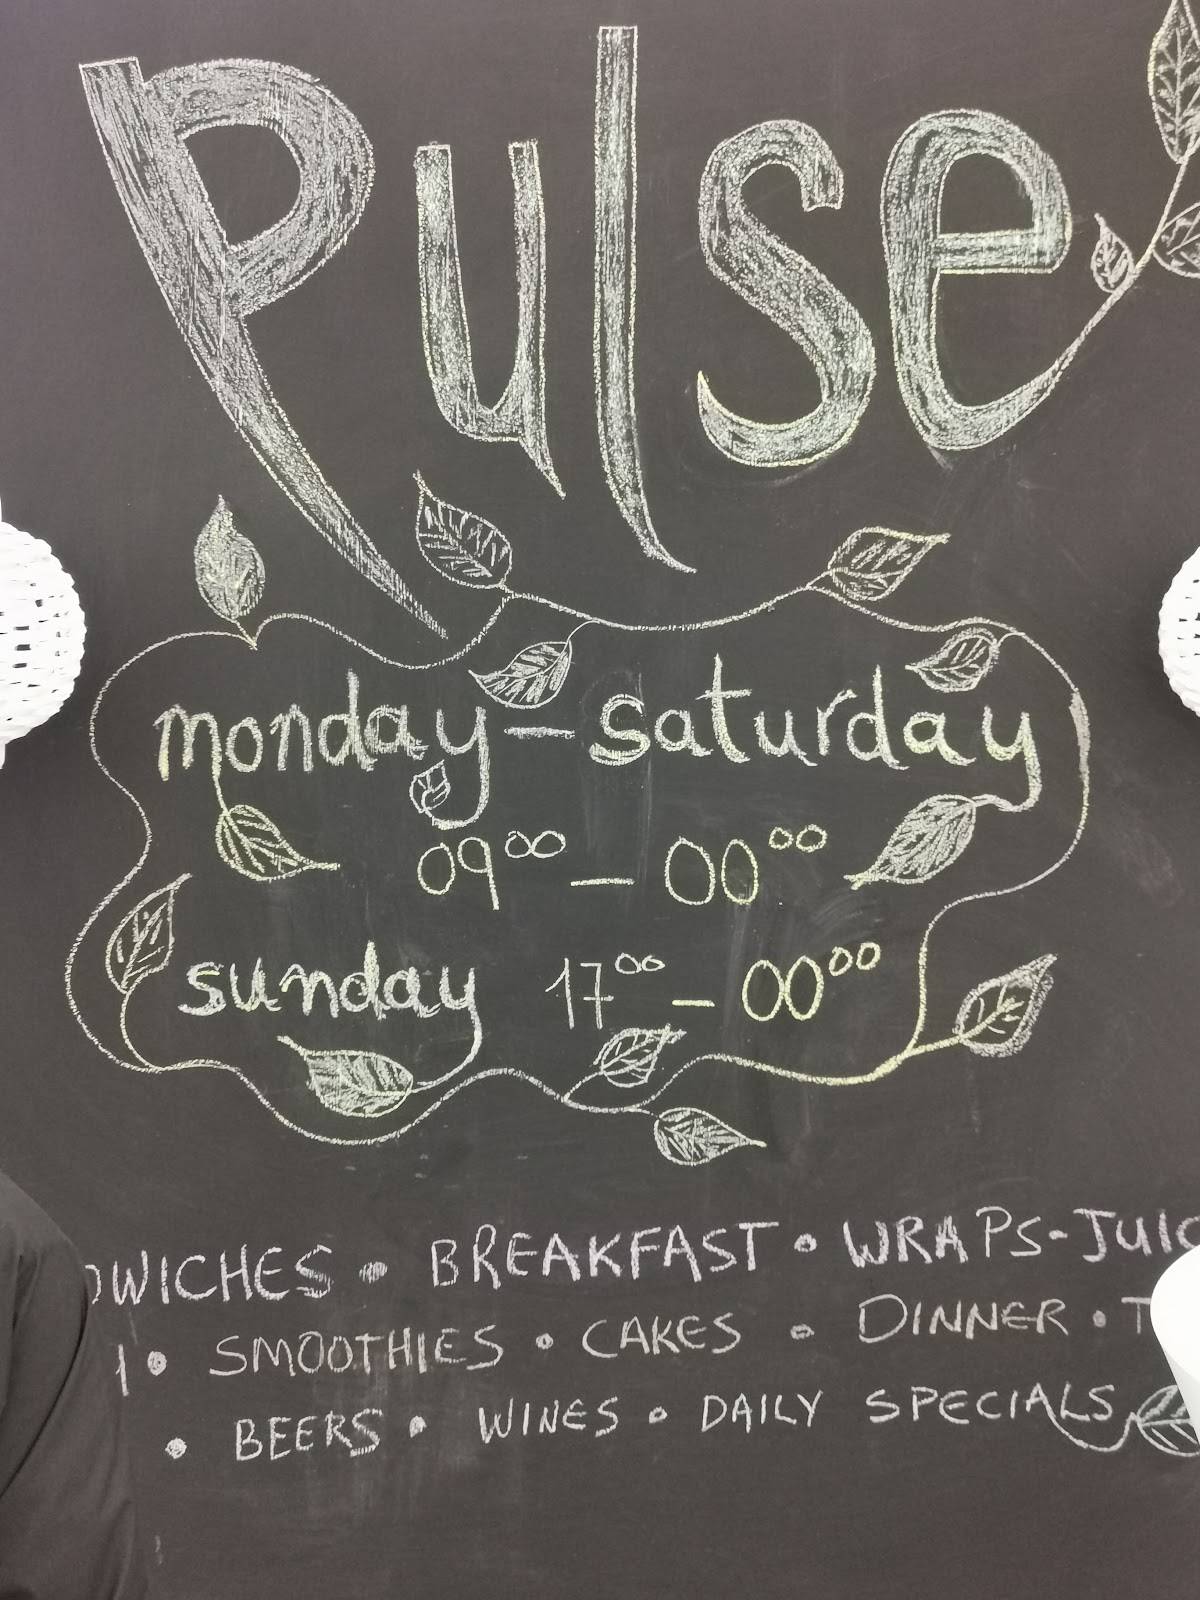 Pulse
monday - saturday
09⁰⁰ - 00⁰⁰
sunday 17⁰⁰ - 00⁰⁰
• BREAKFAST • WRAPS -
• SMOOTHIES • CAKES • DINNER •
• BEERS • WINES • DAILY SPECIALS